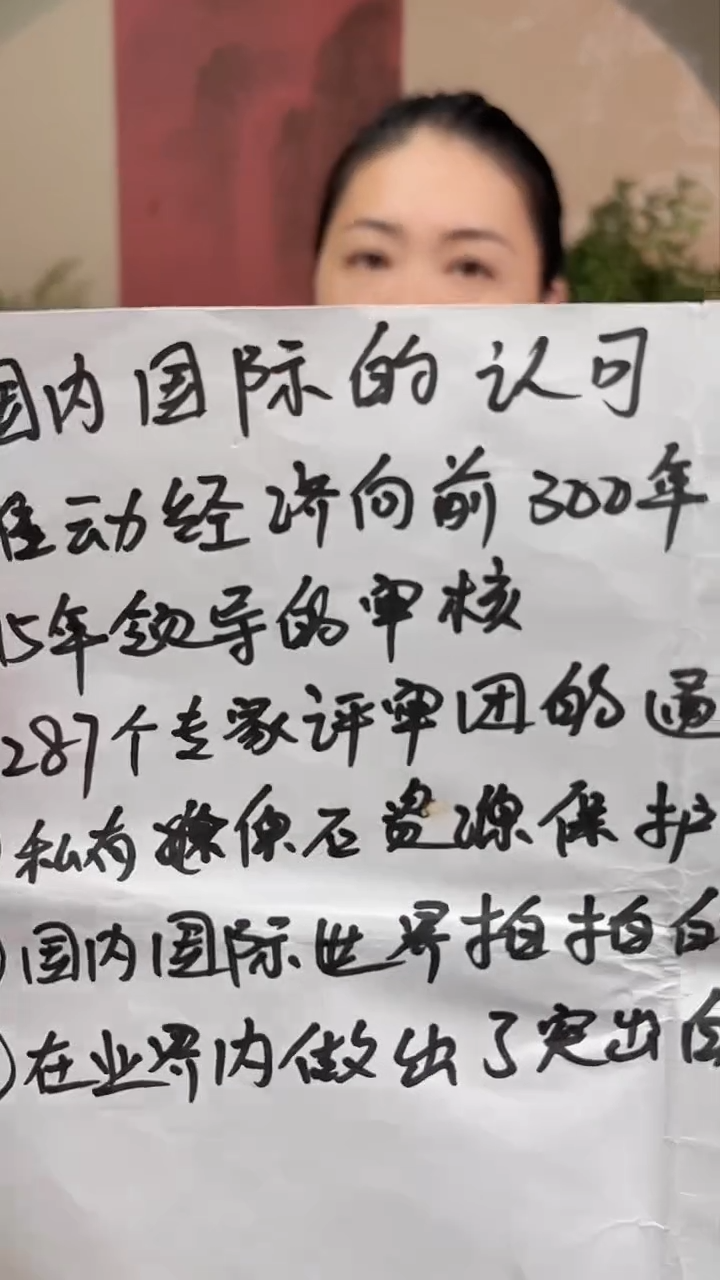 国内国际的认可
推动经济向前300年
15年领导的审核
287个专家评审团的通
私有 原石资源保护
国内国际世界拍拍
在业界内做出了突出